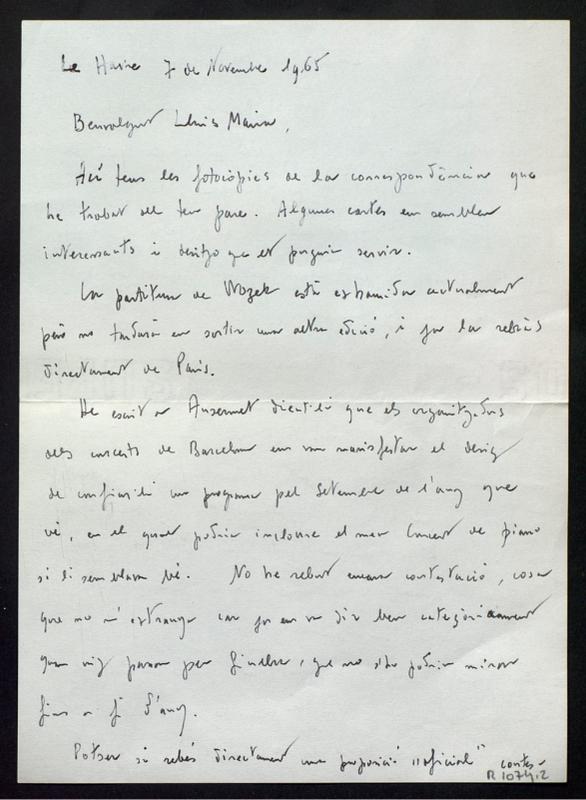 Le Havre 7 de Novembre 1965
Benvolgut Lluis Maria,
Ací tens les fotocòpies de la correspondència que
he trobat del teu pare. Algunes cartes em semblen
interessants i desitjo que et puguin servir.
La partitura de Wozek està exhaurida actualment
però no tardarà en sortir una altra edició, i ja la rebràs
directament de Paris.
He escrit a Ansermet dient-li que els organitzadors
dels concerts de Barcelona em van manifestar el desig
de confiar-li un programa pel Setembre de l'any que
vé, en el qual podria incloure el meu Concert de piano
si li semblava bé. No he rebut encara contestació, cosa
que no m'estranya car ja em va dir ben categòricament
quan vaig passar per Ginebra, que no s'ho podria mirar
fins a fi d'any.
Potser si rebés directament una proposició "oficial" contes-
R 1074.2